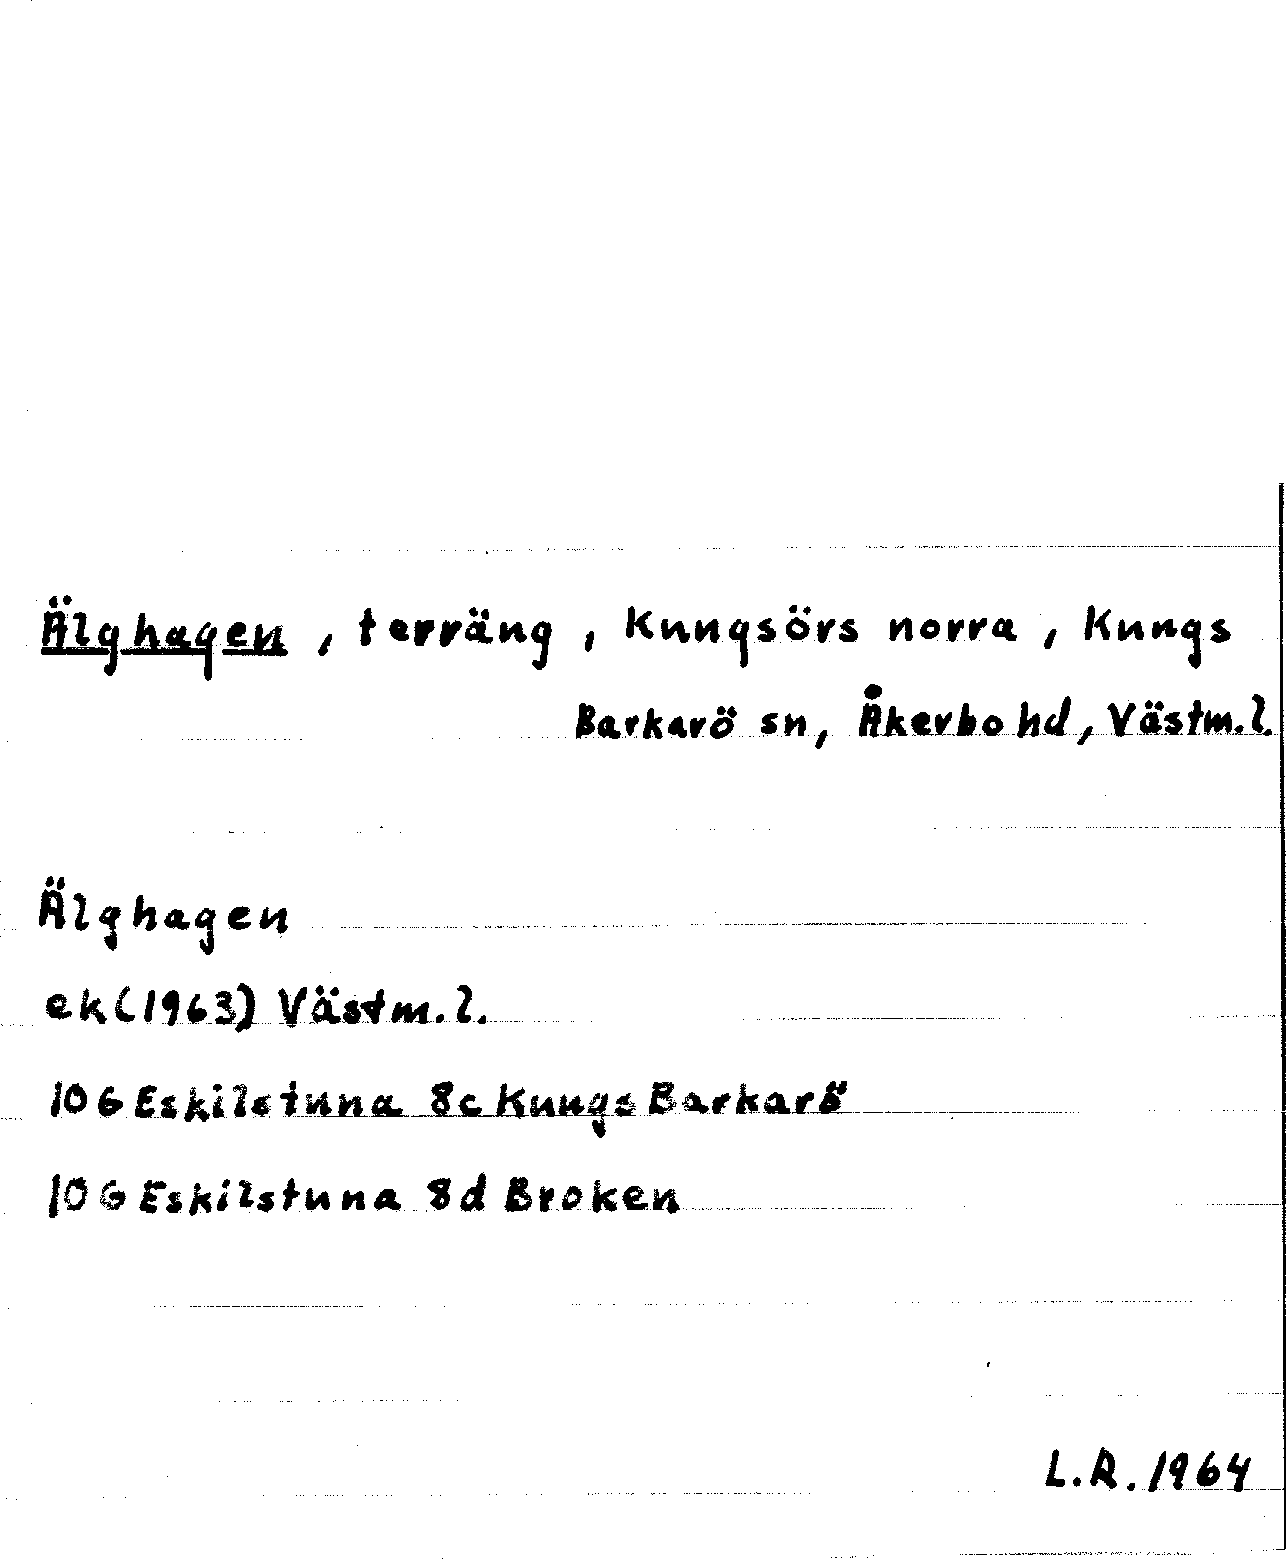 Älghagen, terräng, Kungsörs norra, Kungs
Barkarö sn, Åkerbo hd, Västm.l.
Älghagen
ek(1963) Västm.l.
10G Eskilstuna 8c Kungs Barkarö
10G Eskilstuna 8d Broken
L.R. 1964